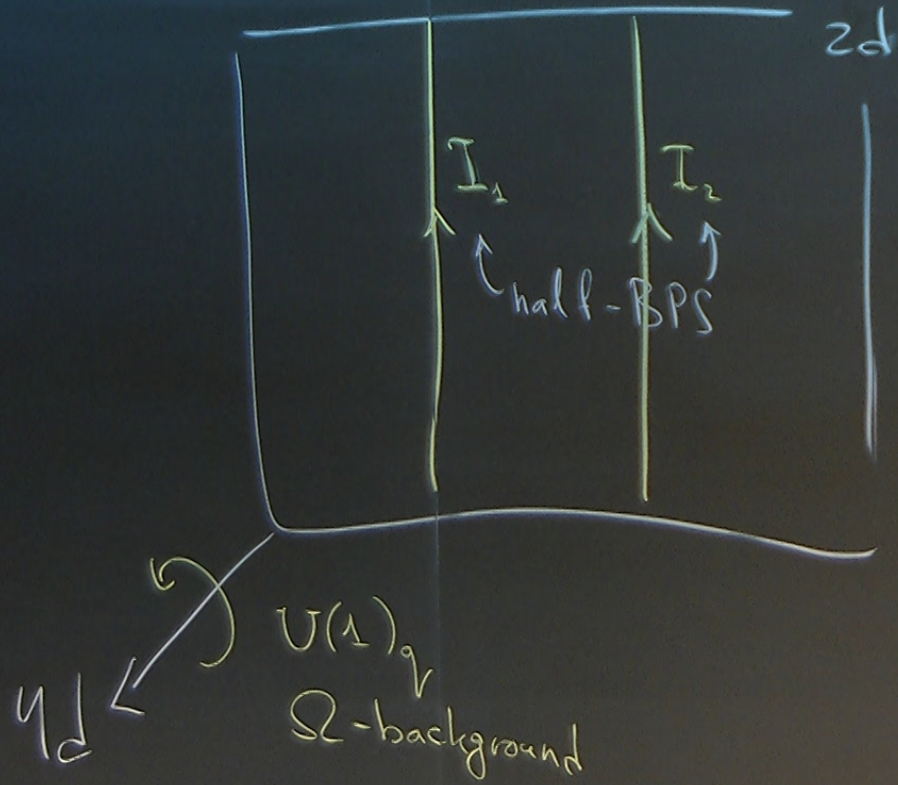 2d
I₁ I₂
half-BPS
U(1)q
4d
Ω-background